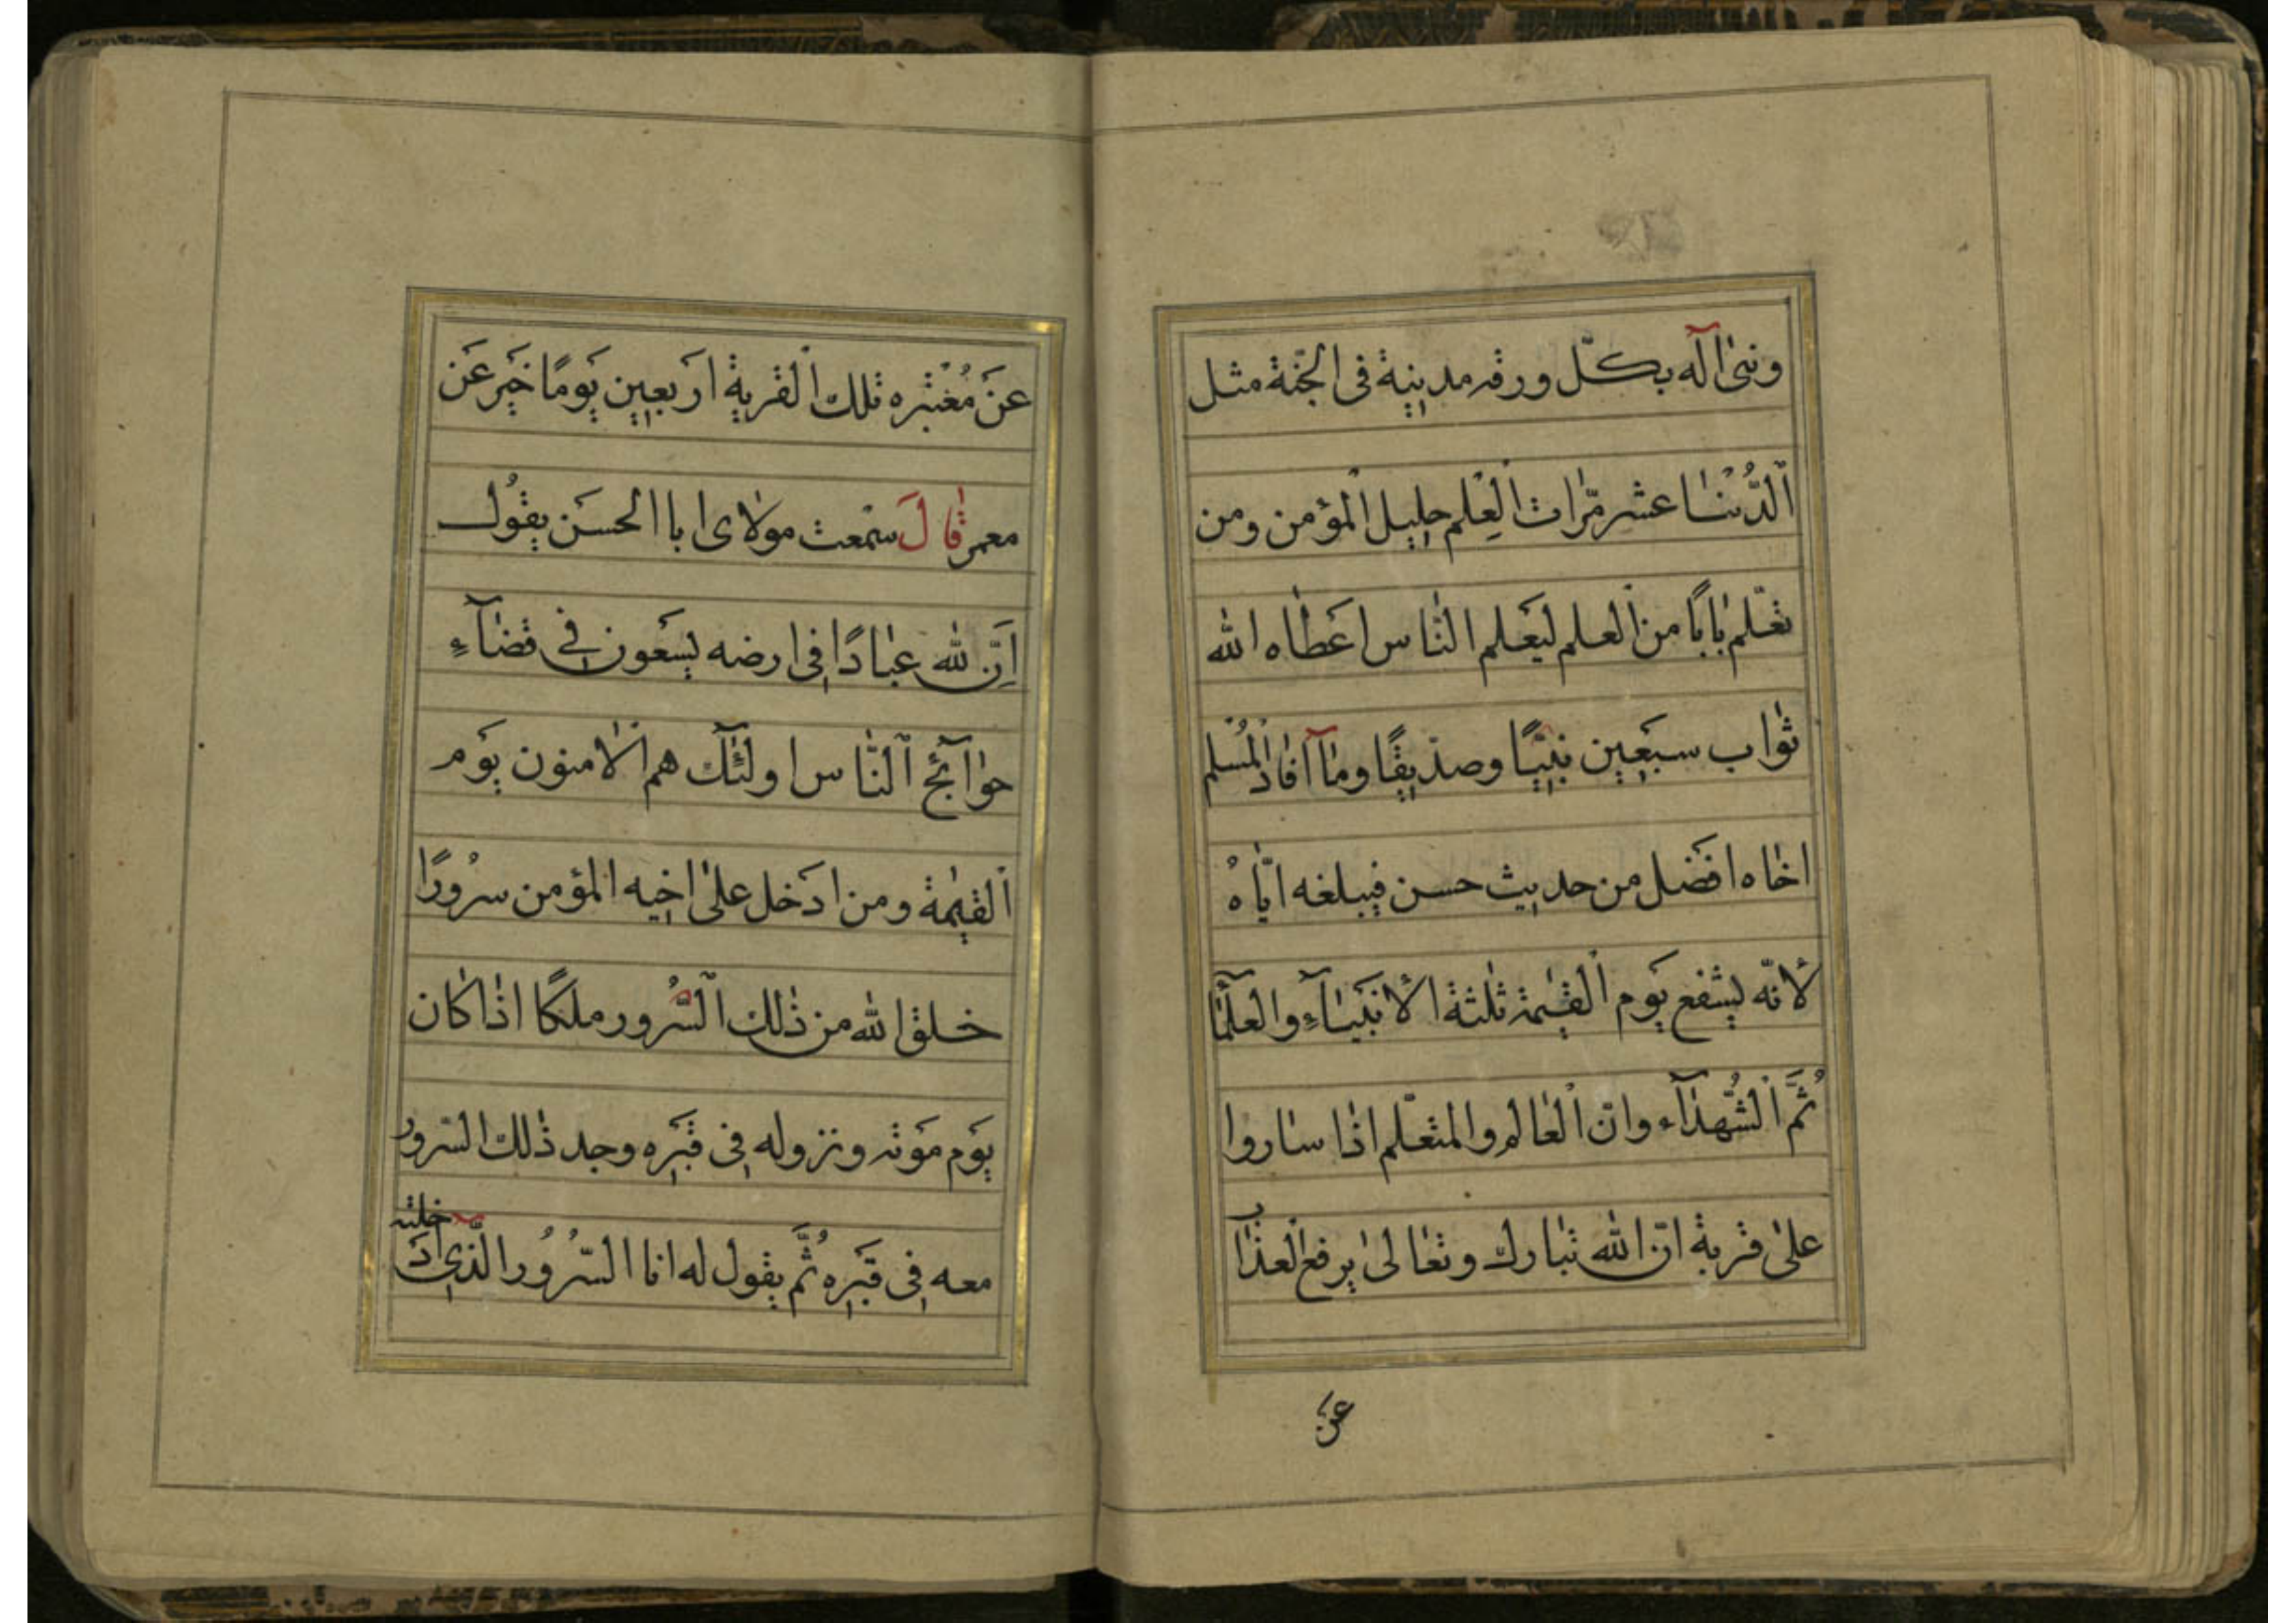 وبنىٰ آله بكلّ ورقه مدينة فى الجنّة مثل
اَلدُّنْيٰا عشر مرّات العِلم جليل المؤمن ومن
تعَلّم بٰابًا من العلم ليَعَلم النّٰاس اعَطٰاه الله
ثوٰاب سبَعين نبيًّا وصدّيقًا ومٰا آفٰاد المُسْلم
اخٰاه افضَل من حديث حسن فيبلغه ايّٰاهُ
لانّه يشفع يَوم القيٰمة ثلٰثة الانبَيٰاءِ والعلَمٰا
ثُمَّ الشُّهدآء وانّ العٰالم والمتعَلّم اذٰا سٰاروا
علىٰ قرية انّ الله تبٰارك وتعٰالىٰ يرفع العذٰا
عن
عَنْ مُغبْره تلك القرية اربَعين يَومًا خَبر عَن
معمر قٰالَ سَمعت مولٰاى ابا الحسَن يقوُل
اِنَّ لله عبٰادًا فى ارضه يسَعون فى قضٰآءِ
حوٰائج النّٰاس اولٰئك هم الٰامنون يَوم
القيٰمة ومن ادَخل علىٰ اخيه المؤمن سرُورًا
خلق الله من ذٰلك السُّرور ملكًا اذٰا كٰان
يَوم مَوته ونزوله فى قبَره وجد ذٰلك السّرور
معه فى قبَره ثُمَّ يقول له انا السّرُوُر الّذى ادَ
خلته